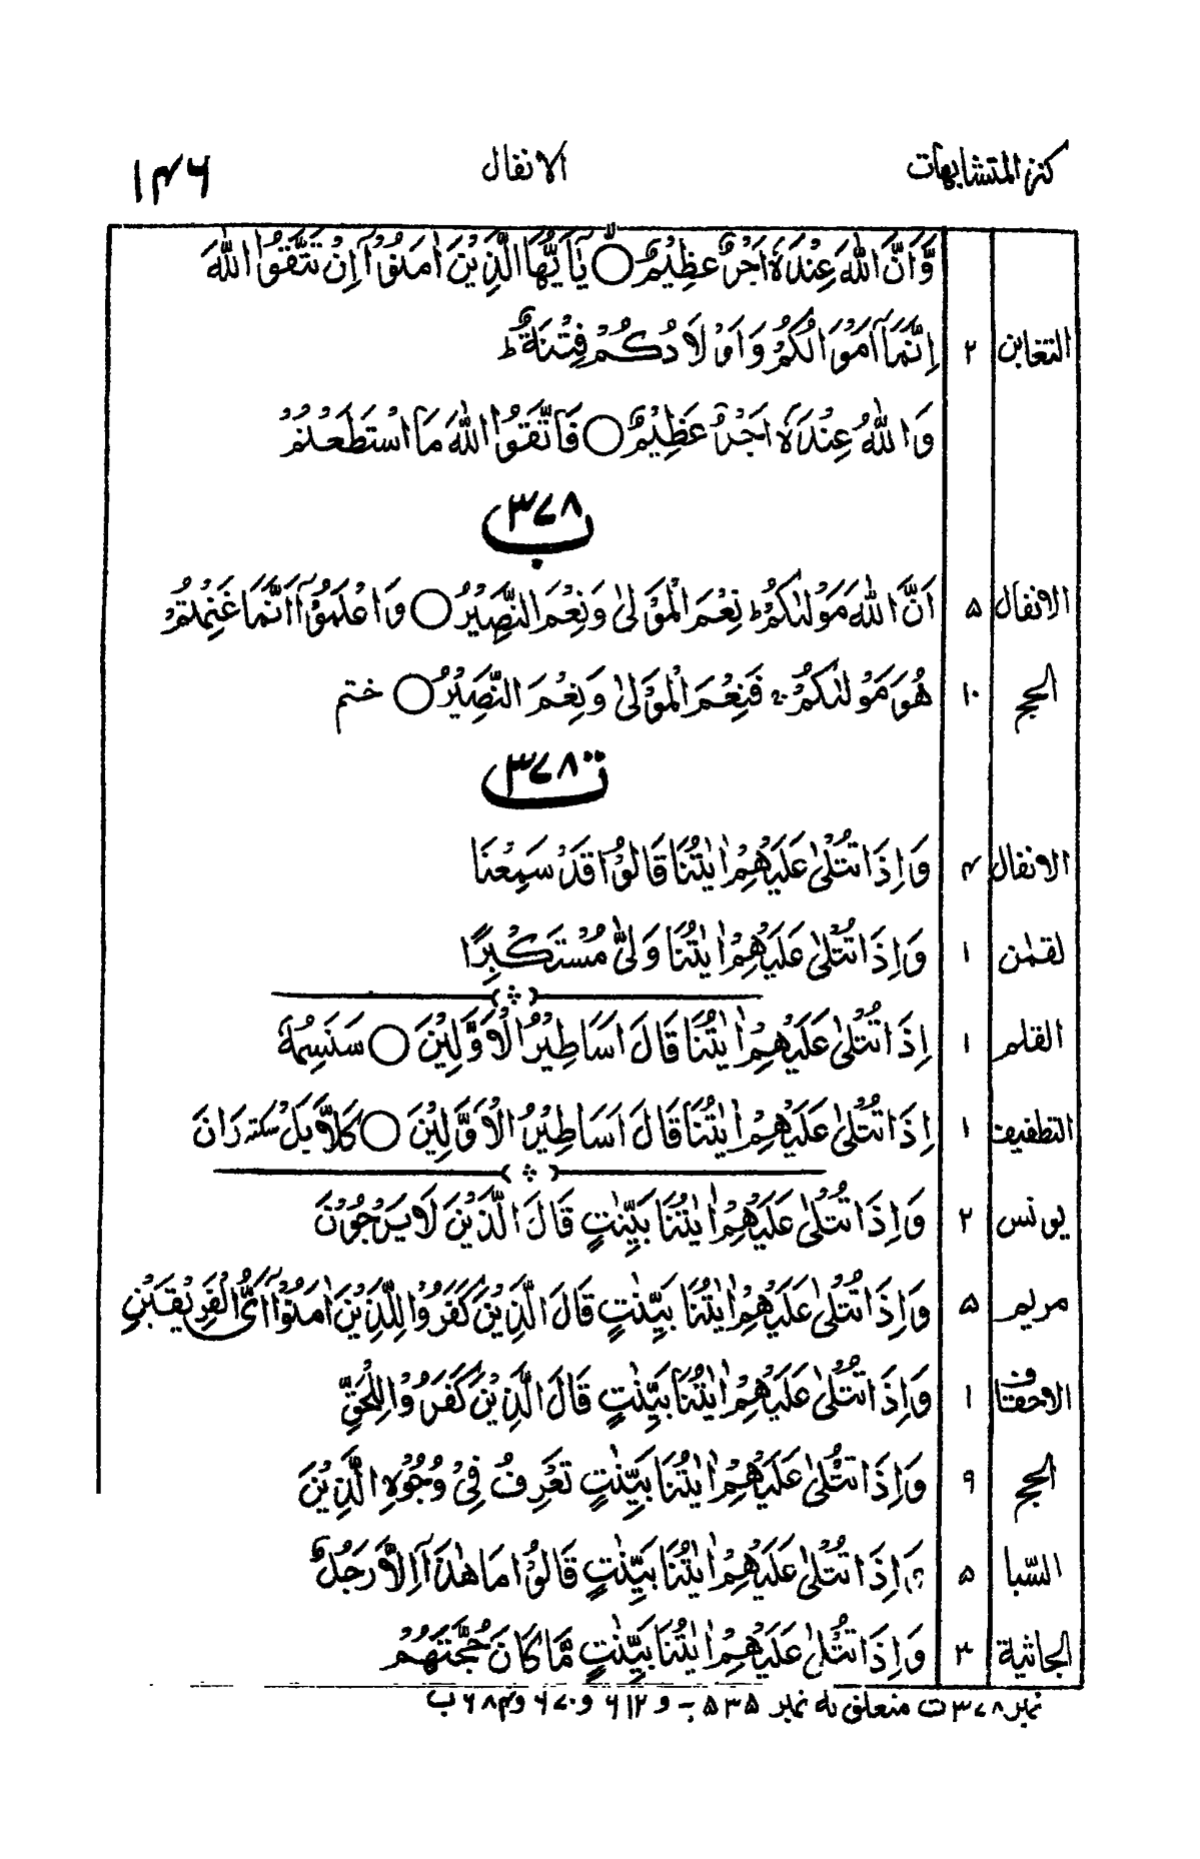 كنز المتشابهات الانفال ۱۴۶
وَّاَنَّ اللّٰهَ عِنْدَهٗٓ اَجْرٌ عَظِيْمٌ ○ يٰٓاَيُّهَا الَّذِيْنَ اٰمَنُوْٓا اِنْ تَتَّقُوا اللّٰهَ
التغابن ۲ اِنَّمَآ اَمْوَالُكُمْ وَاَوْلَادُكُمْ فِتْنَةٌ ؕ
وَاللّٰهُ عِنْدَهٗٓ اَجْرٌ عَظِيْمٌ ○ فَاتَّقُوا اللّٰهَ مَا اسْتَطَعْتُمْ
۳۷۸ ب
الانفال ۵ اَنَّ اللّٰهَ مَوْلٰىكُمْ ؕ نِعْمَ الْمَوْلٰى وَنِعْمَ النَّصِيْرُ ○ وَاعْلَمُوْٓا اَنَّمَا غَنِمْتُمْ
الحج ۱۰ هُوَ مَوْلٰىكُمْ ۚ فَنِعْمَ الْمَوْلٰى وَنِعْمَ النَّصِيْرُ ○ ختم
۳۷۸ ت
الانفال ۴ وَاِذَا تُتْلٰى عَلَيْهِمْ اٰيٰتُنَا قَالُوْا قَدْ سَمِعْنَا
لقمٰن ۱ وَاِذَا تُتْلٰى عَلَيْهِمْ اٰيٰتُنَا وَلّٰى مُسْتَكْبِرًا
القلم ۱ اِذَا تُتْلٰى عَلَيْهِمْ اٰيٰتُنَا قَالَ اَسَاطِيْرُ الْاَوَّلِيْنَ ○ سَنَسِمُهٗ
التطفيف ۱ اِذَا تُتْلٰى عَلَيْهِمْ اٰيٰتُنَا قَالَ اَسَاطِيْرُ الْاَوَّلِيْنَ ○ كَلَّا بَلْ سكتہ رَانَ
يونس ۲ وَاِذَا تُتْلٰى عَلَيْهِمْ اٰيٰتُنَا بَيِّنٰتٍ قَالَ الَّذِيْنَ لَا يَرْجُوْنَ
مريم ۵ وَاِذَا تُتْلٰى عَلَيْهِمْ اٰيٰتُنَا بَيِّنٰتٍ قَالَ الَّذِيْنَ كَفَرُوْا لِلَّذِيْنَ اٰمَنُوْٓا اَىُّ الْفَرِيْقَيْنِ
الاحقاف ۱ وَاِذَا تُتْلٰى عَلَيْهِمْ اٰيٰتُنَا بَيِّنٰتٍ قَالَ الَّذِيْنَ كَفَرُوْا لِلْحَقِّ
الحج ۹ وَاِذَا تُتْلٰى عَلَيْهِمْ اٰيٰتُنَا بَيِّنٰتٍ تَعْرِفُ فِيْ وُجُوْهِ الَّذِيْنَ
السّبا ۵ وَاِذَا تُتْلٰى عَلَيْهِمْ اٰيٰتُنَا بَيِّنٰتٍ قَالُوْا مَا هٰذَآ اِلَّا رَجُلٌ
الجاثية ۳ وَاِذَا تُتْلٰى عَلَيْهِمْ اٰيٰتُنَا بَيِّنٰتٍ مَّا كَانَ حُجَّتَهُمْ
نمبر ۳۷۸ ت متعلق بہ نمبر ۵۳۵ ب و ۶۱۲ و ۶۷۰ و ۶۸۴ ب